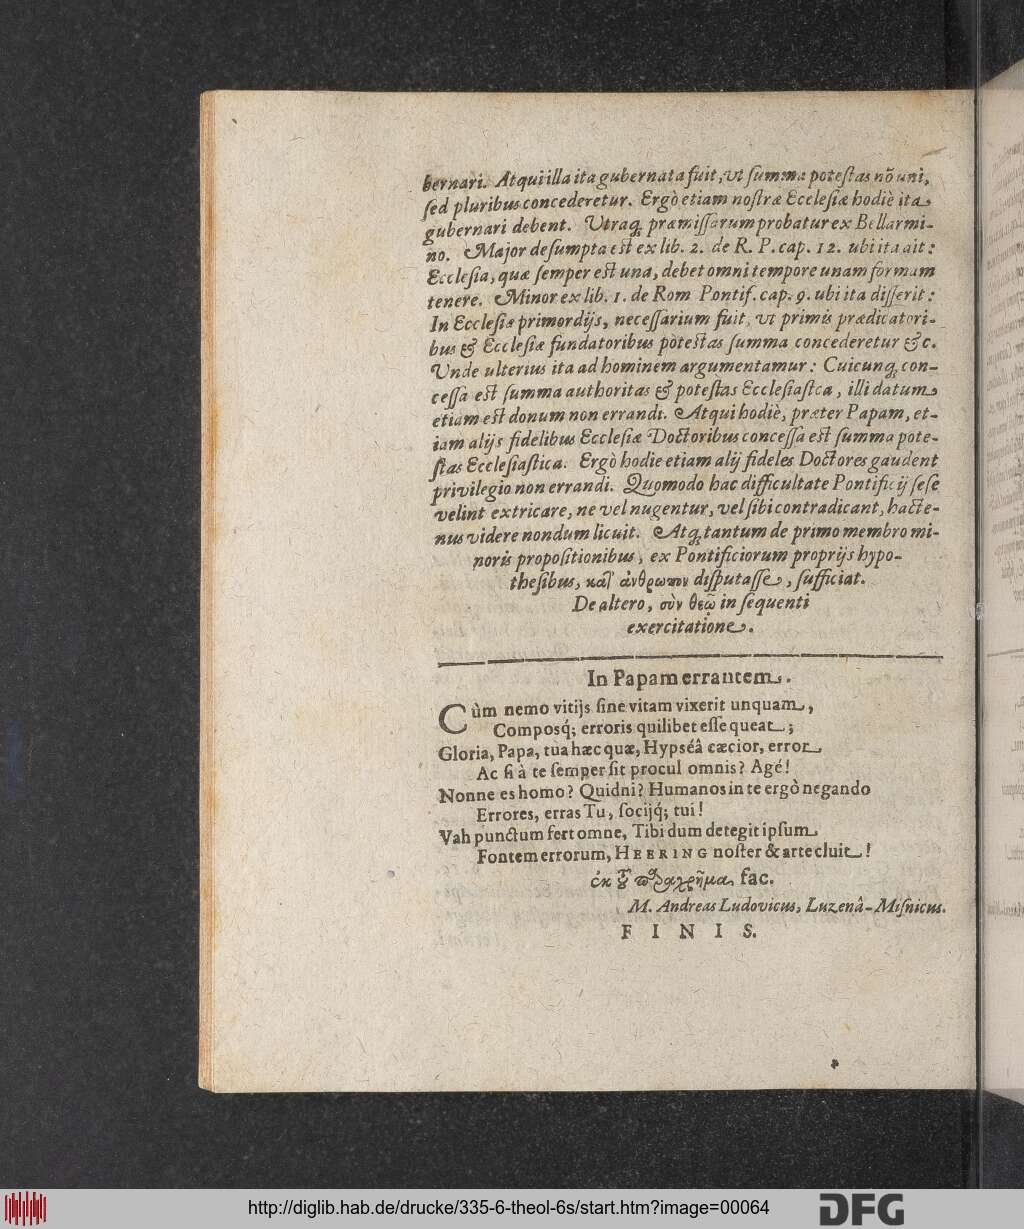 bernari. Atqui illa ita gubernata fuit, vt ſumma poteſtas nõ uni,
ſed pluribus concederetur. Ergò etiam noſtræ Eccleſiæ hodiè ita
gubernari debent. Utraq; præmiſſarum probatur ex Bellarmi-
no. Major deſumpta est ex lib. 2. de R. P. cap. 12. ubi ita ait:
Eccleſia, quæ ſemper est una, debet omni tempore unam formam
tenere. Minor ex lib. 1. de Rom Pontif. cap. 9. ubi ita diſſerit:
In Eccleſiæ primordijs, neceſſarium fuit, vt primis prædicatori-
bus & Eccleſiæ fundatoribus potestas ſumma concederetur &c.
Unde ulterius ita ad hominem argumentamur: Cuicunq; con-
ceſſa est ſumma authoritas & poteſtas Eccleſiaſtca, illi datum
etiam est donum non errandi. Atqui hodiè, præter Papam, et-
iam alijs fidelibus Eccleſiæ Doctoribus conceſſa est ſumma pote-
ſtas Eccleſiaſtica. Ergò hodie etiam alij fideles Doctores gaudent
privilegio non errandi. Quomodo hac difficultate Pontificij ſeſe
velint extricare, ne vel nugentur, vel ſibi contradicant, hacte-
nus videre nondum licuit. Atq; tantum de primo membro mi-
noris propoſitionibus, ex Pontificiorum proprijs hypo-
theſibus, κατ' ἀνθρωπον diſputaſſe, ſufficiat.
De altero, σὺν θεῷ in ſequenti
exercitatione.
In Papam errantem.
Cùm nemo vitijs ſine vitam vixerit unquam,
Composq́; erroris quilibet eſſe queat;
Gloria, Papa, tùa hæc quæ, Hypſéâ cæcior, error
Ac ſi à te ſemper ſit procul omnis? Agé!
Nonne es homo? Quidni? Humanos in te ergò negando
Errores, erras Tu, ſocijq́; tui!
Vah punctum fert omne, Tibi dum detegit ipſum
Fontem errorum, HEERING noſter & arte cluit!
ἐκ τȣ͂ παραχρῆμα, fac.
M. Andreas Ludovicus, Luzenâ-Miſnicus.
FINIS.
http://diglib.hab.de/drucke/335-6-theol-6s/start.htm?image=00064
DFG